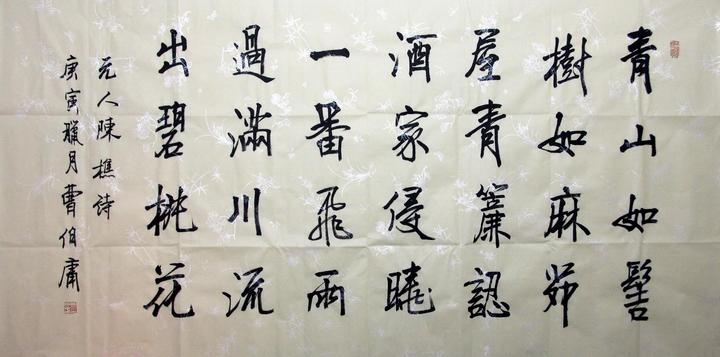 青山如髻
樹如麻茆
屋青簾認
酒家侵曉
一番飛雨
過滿川流
出碧桃花
元人陳樵詩
庚寅臘月曹伯庸